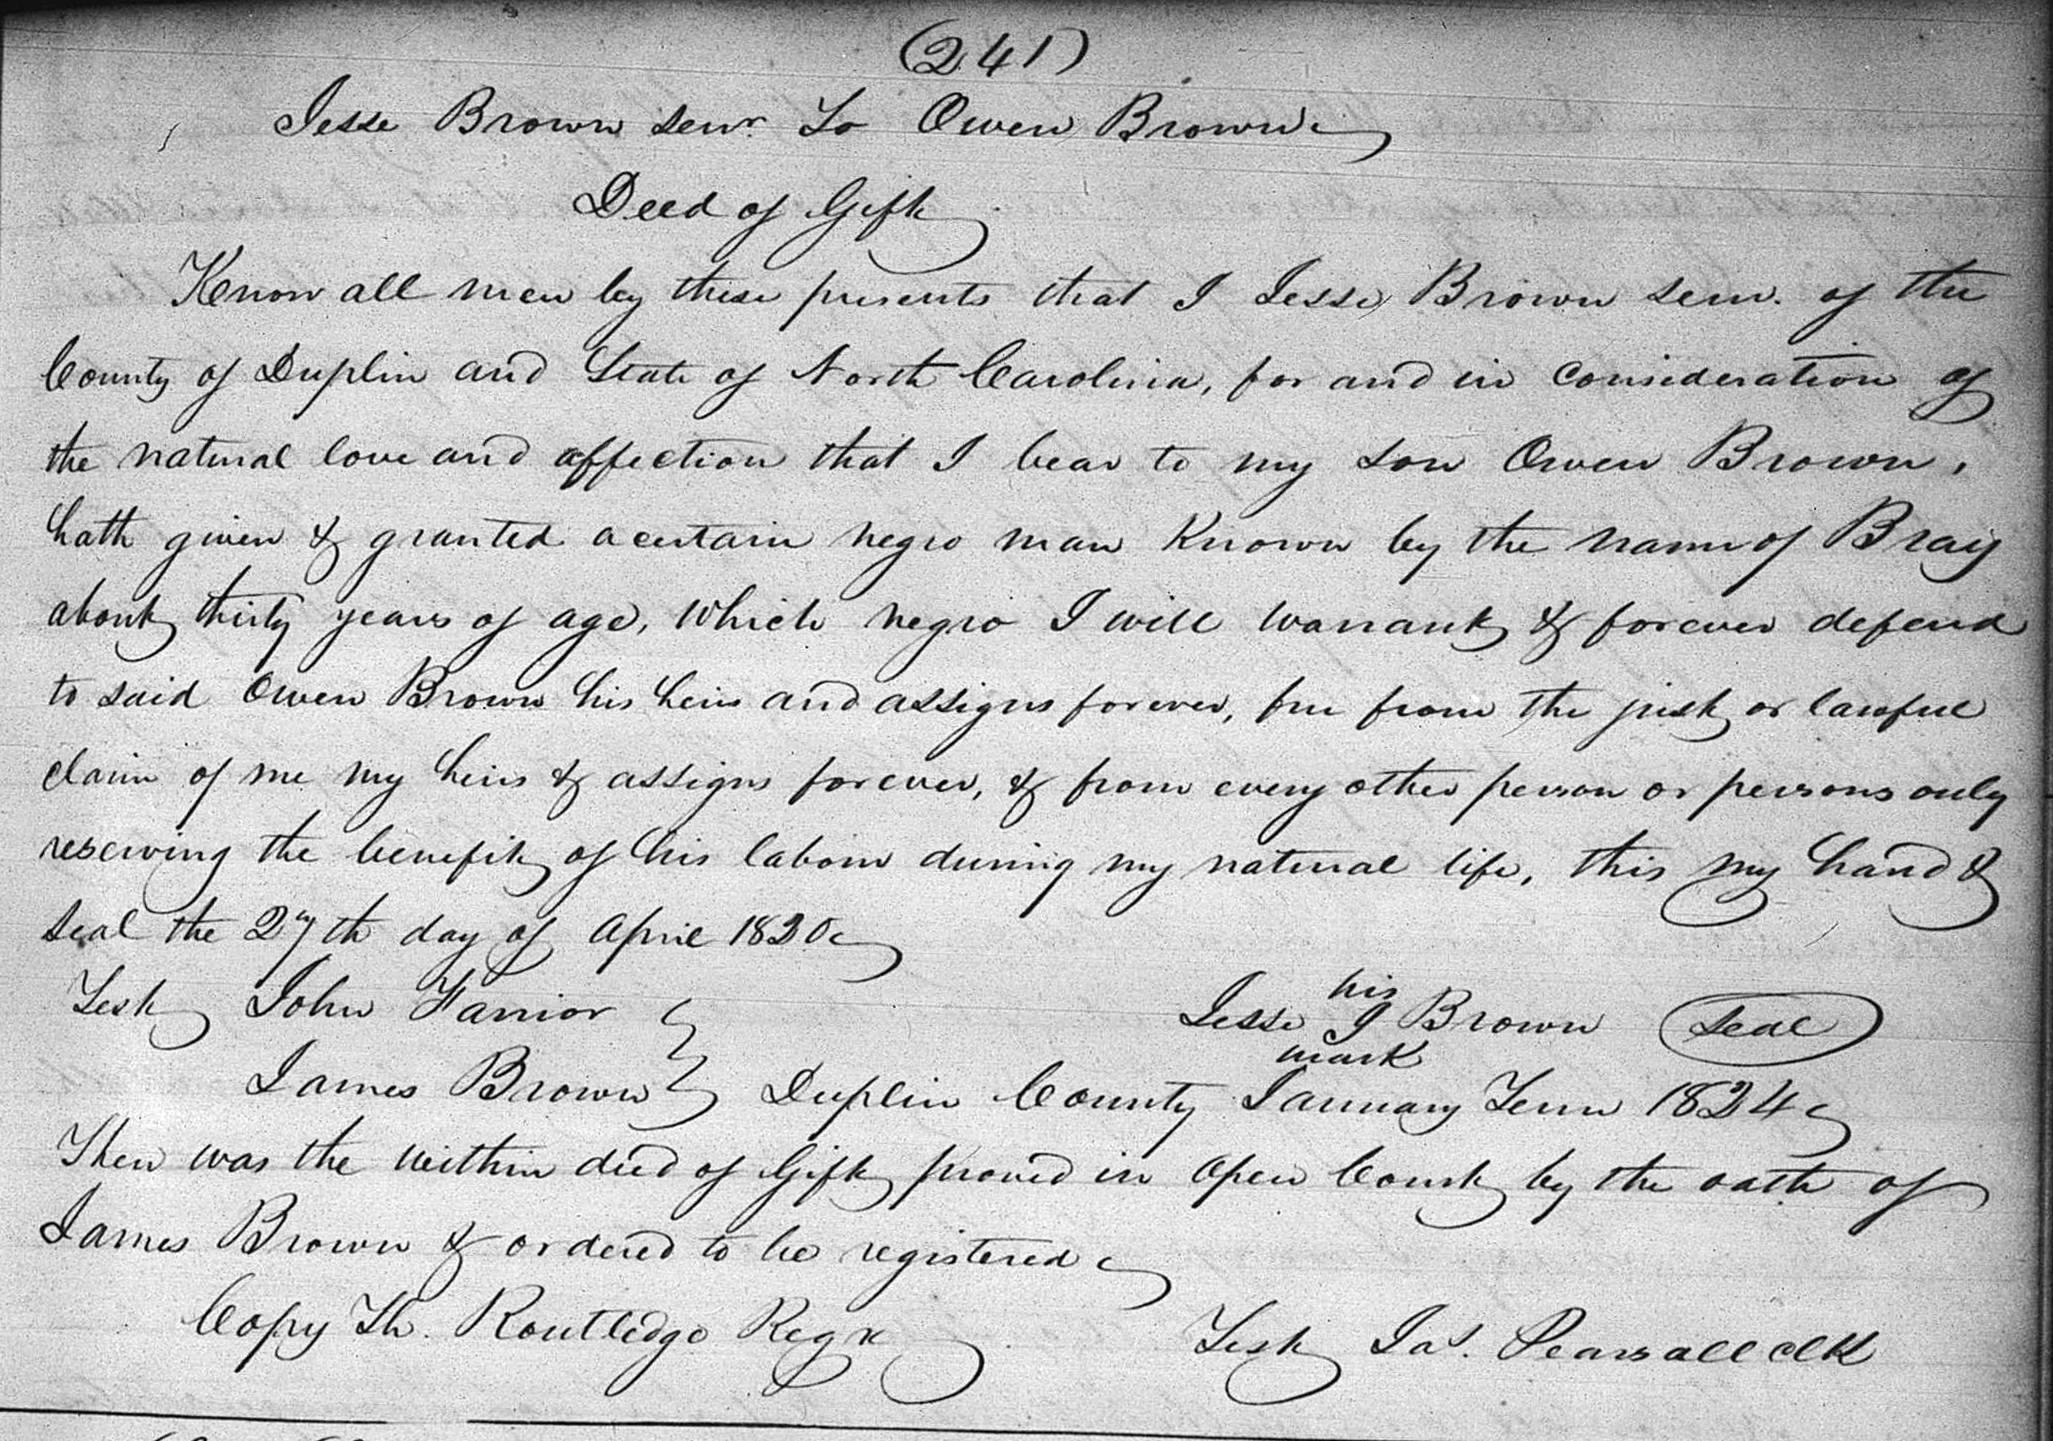 (241)
Jesse Brown senr. To Owen Brown
Deed of Gift
Know all men by these presents that I Jesse Brown senr. of the
County of Duplin and State of North Carolina, for and in consideration of
the natural love and affection that I bear to my son Owen Brown,
hath given & granted a certain negro man Known by the name of Bray
about thirty years of age, which negro I will warrant & forever defend
to said Owen Brown his heirs and assigns forever, free from the just or lawful
claim of me my heirs & assigns forever, & from every other person or persons only
reserving the benefit of his labour during my natural life, this my hand &
seal the 27th day of April 1820
Test John Farrior
his
Jesse J Brown Seal
mark
James Brown Duplin County January Term 1824
Then was the within deed of Gift proved in Open Court by the oath of
James Brown & ordered to be registered
Copy Th. Routledge Regr Test Jas. Pearsall clk